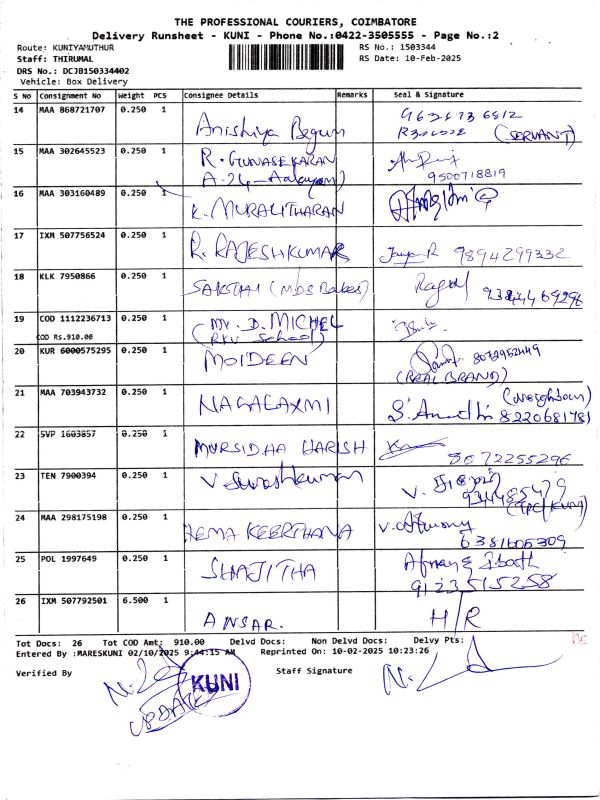 THE PROFESSIONAL COURIERS, COIMBATORE
Delivery Runsheet - KUNI - Phone No.:0422-3505555 - Page No.:2
Route: KUNIYAMUTHUR RS No.: 1503344
Staff: THIRUMAL RS Date: 10-Feb-2025
DRS No.: DCJB150334402
Vehicle: Box Delivery
S No Consignment No Weight PCS Consignee Details Remarks Seal & Signature
14 MAA 868721707 0.250 1 Anishiya Begum
(SERVANT)
15 MAA 302645523 0.250 1 R. GUNASEKARAN
9500718819
16 MAA 303160489 0.250 1 K. MURALITHARAN
17 IXM 507756524 0.250 1 R. RAJESHKUMAR 9894299332
18 KLK 7950866 0.250 1 SAKTHI
19 COD 1112236713 0.250 1 Mr. D. MICHEL
(RKV School)
COD Rs.910.00
20 KUR 6000575295 0.250 1 MOIDEEN
(REAL BRAND)
21 MAA 703943732 0.250 1 NAGALAXMI (Neighbour)
8220681781
22 SVP 1603857 0.250 1 MURSIDHA HARISH
8072255296
23 TEN 7900394 0.250 1
24 MAA 298175198 0.250 1 HEMA KEERTHANA
6381605309
25 POL 1997649 0.250 1 SHAJITHA
9123515258
26 IXM 507792501 6.500 1 ANSAR. H/R
Tot Docs: 26 Tot COD Amt: 910.00 Delvd Docs: Non Delvd Docs: Delvy Pts:
Entered By :MARESKUNI 02/10/2025 9:44:15 AM Reprinted On: 10-02-2025 10:23:26
Verified By Staff Signature
KUNI
UPDATE